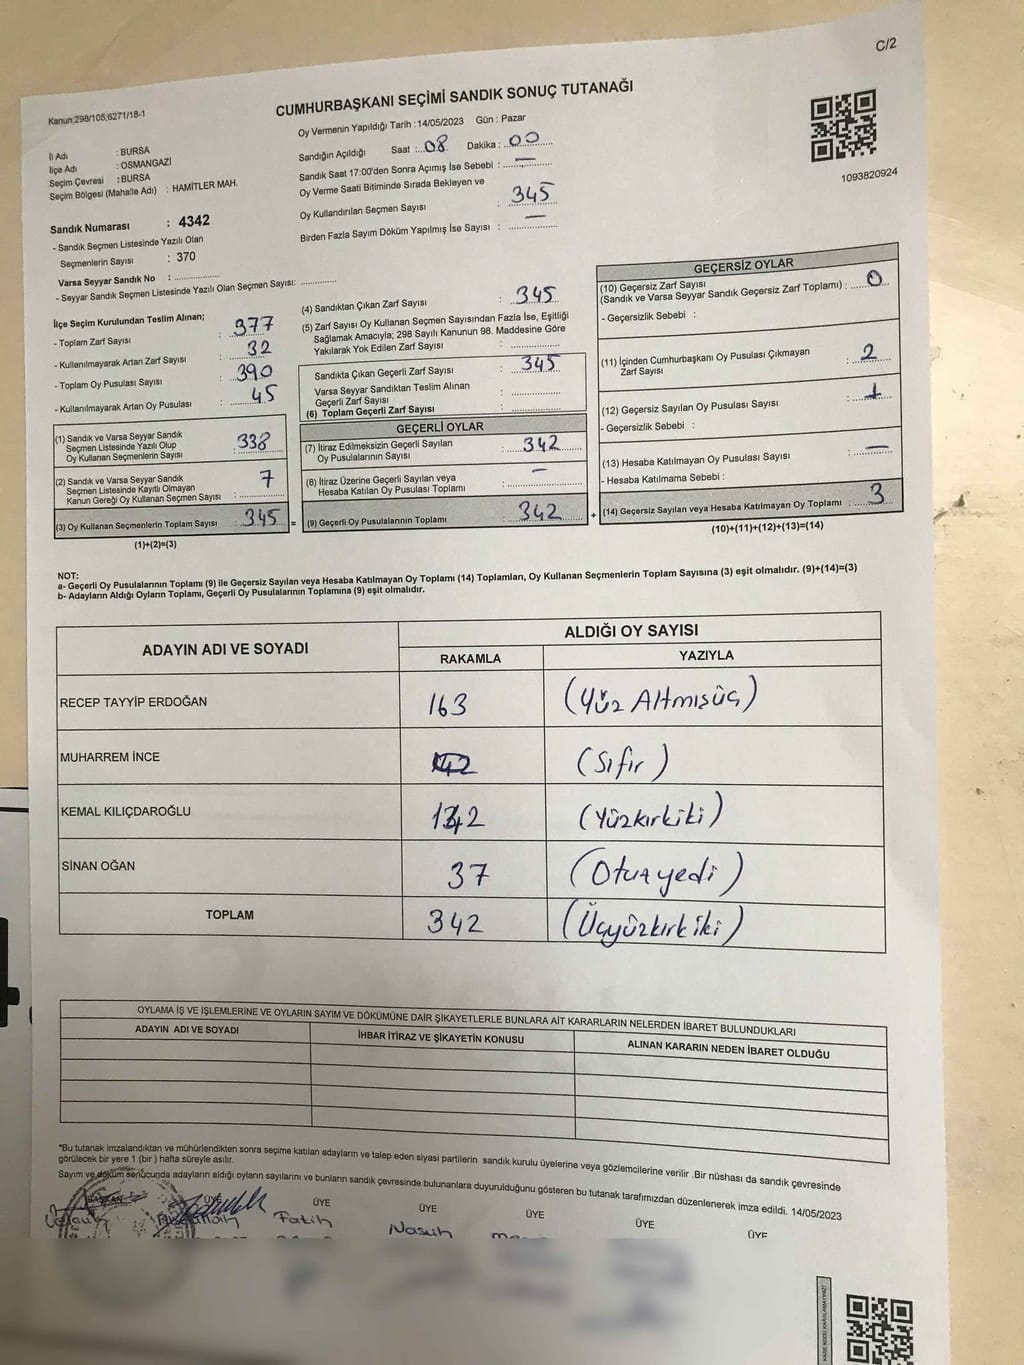 C/2
Kanun;298/105;6271/18-1
CUMHURBAŞKANI SEÇİMİ SANDIK SONUÇ TUTANAĞI
Oy Vermenin Yapıldığı Tarih :14/05/2023 Gün : Pazar
İl Adı : BURSA
İlçe Adı : OSMANGAZİ
Seçim Çevresi : BURSA
Seçim Bölgesi (Mahalle Adı) : HAMİTLER MAH.
Sandığın Açıldığı Saat : 08 Dakika : 00
Sandık Saat 17:00'den Sonra Açımış İse Sebebi : —
Oy Verme Saati Bitiminde Sırada Bekleyen ve
Oy Kullandırılan Seçmen Sayısı : 345
Birden Fazla Sayım Döküm Yapılmış İse Sayısı : —
1093820924
Sandık Numarası : 4342
- Sandık Seçmen Listesinde Yazılı Olan
Seçmenlerin Sayısı : 370
Varsa Seyyar Sandık No :
- Seyyar Sandık Seçmen Listesinde Yazılı Olan Seçmen Sayısı:
İlçe Seçim Kurulundan Teslim Alınan;
- Toplam Zarf Sayısı : 377
- Kullanılmayarak Artan Zarf Sayısı : 32
- Toplam Oy Pusulası Sayısı : 390
- Kullanılmayarak Artan Oy Pusulası : 45
(1) Sandık ve Varsa Seyyar Sandık
Seçmen Listesinde Yazılı Olup
Oy Kullanan Seçmenlerin Sayısı : 338
(2) Sandık ve Varsa Seyyar Sandık
Seçmen Listesinde Kayıtlı Olmayan
Kanun Gereği Oy Kullanan Seçmen Sayısı : 7
(3) Oy Kullanan Seçmenlerin Toplam Sayısı : 345 =
(1)+(2)=(3)
(4) Sandıktan Çıkan Zarf Sayısı : 345
(5) Zarf Sayısı Oy Kullanan Seçmen Sayısından Fazla İse, Eşitliği
Sağlamak Amacıyla; 298 Sayılı Kanunun 98. Maddesine Göre
Yakılarak Yok Edilen Zarf Sayısı :
Sandıkta Çıkan Geçerli Zarf Sayısı : 345
Varsa Seyyar Sandıktan Teslim Alınan
Geçerli Zarf Sayısı :
(6) Toplam Geçerli Zarf Sayısı :
GEÇERLİ OYLAR
(7) İtiraz Edilmeksizin Geçerli Sayılan
Oy Pusulalarının Sayısı : 342
(8) İtiraz Üzerine Geçerli Sayılan veya
Hesaba Katılan Oy Pusulası Toplamı : —
(9) Geçerli Oy Pusulalarının Toplamı : 342 +
GEÇERSİZ OYLAR
(10) Geçersiz Zarf Sayısı
(Sandık ve Varsa Seyyar Sandık Geçersiz Zarf Toplamı) : 0
- Geçersizlik Sebebi :
(11) İçinden Cumhurbaşkanı Oy Pusulası Çıkmayan
Zarf Sayısı : 2
(12) Geçersiz Sayılan Oy Pusulası Sayısı : 1
- Geçersizlik Sebebi :
(13) Hesaba Katılmayan Oy Pusulası Sayısı : —
- Hesaba Katılmama Sebebi :
(14) Geçersiz Sayılan veya Hesaba Katılmayan Oy Toplamı : 3
(10)+(11)+(12)+(13)=(14)
NOT:
a- Geçerli Oy Pusulalarının Toplamı (9) ile Geçersiz Sayılan veya Hesaba Katılmayan Oy Toplamı (14) Toplamları, Oy Kullanan Seçmenlerin Toplam Sayısına (3) eşit olmalıdır. (9)+(14)=(3)
b- Adayların Aldığı Oyların Toplamı, Geçerli Oy Pusulalarının Toplamına (9) eşit olmalıdır.
ADAYIN ADI VE SOYADI
ALDIĞI OY SAYISI
RAKAMLA YAZIYLA
RECEP TAYYİP ERDOĞAN 163 (Yüz Altmışüç)
MUHARREM İNCE (Sıfır)
KEMAL KILIÇDAROĞLU 142 (Yüzkırkiki)
SİNAN OĞAN 37 (Otuzyedi)
TOPLAM 342 (Üçyüzkırkiki)
OYLAMA İŞ VE İŞLEMLERİNE VE OYLARIN SAYIM VE DÖKÜMÜNE DAİR ŞİKAYETLERLE BUNLARA AİT KARARLARIN NELERDEN İBARET BULUNDUKLARI
ADAYIN ADI VE SOYADI İHBAR İTİRAZ VE ŞİKAYETİN KONUSU ALINAN KARARIN NEDEN İBARET OLDUĞU
*Bu tutanak imzalandıktan ve mühürlendikten sonra seçime katılan adayların ve talep eden siyasi partilerin sandık kurulu üyelerine veya gözlemcilerine verilir .Bir nüshası da sandık çevresinde
görülecek bir yere 1 (bir ) hafta süreyle asılır.
Sayım ve döküm sonucunda adayların aldığı oyların sayılarını ve bunların sandık çevresinde bulunanlara duyurulduğunu gösteren bu tutanak tarafımızdan düzenlenerek imza edildi. 14/05/2023
BAŞKAN ÜYE ÜYE ÜYE ÜYE ÜYE ÜYE
Fatih Nasuh